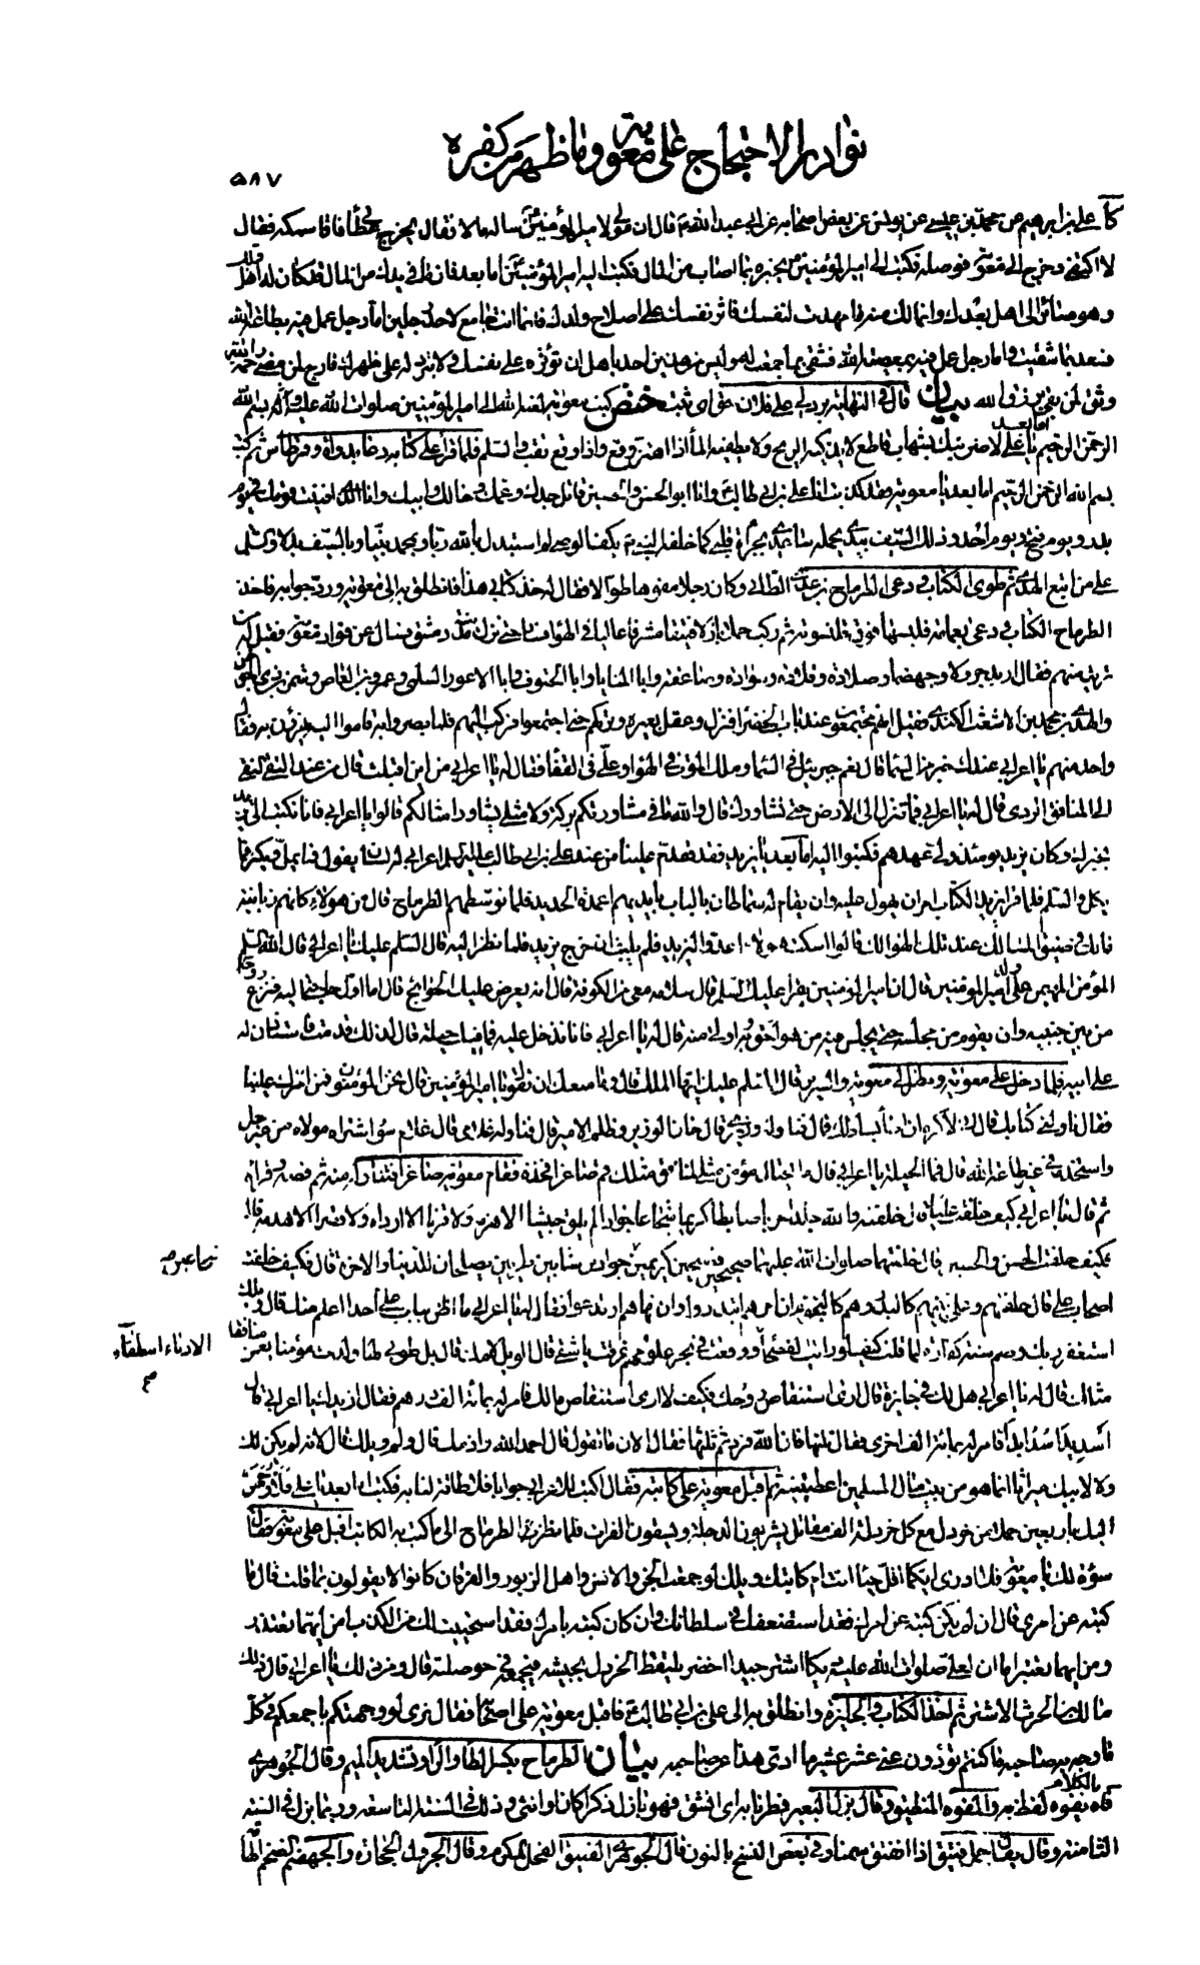 نوادر الاحتجاج على معوية وما ظهر من كفره
۵۸۷
كا على بن ابرهيم عن محمد بن عيسى عن يونس عن بعض اصحابه عن ابى عبد الله قال ان مولى لامير المؤمنين سأله مالا فقال يخرج عطائى فاقاسمكه فقال
لا اكتفى وخرج الى معوية فوصله فكتب الى امير المؤمنين يخبره بما اصاب من المال فكتب اليه امير المؤمنين اما بعد فان ما فى يدك من المال قد كان له اهل قبلك
وهو صائر الى اهل بعدك وانما لك منه ما مهدت لنفسك فاثر نفسك على اصلاح ولدك فانما انت جامع لاحد رجلين اما رجل عمل فيه بطاعة الله
فسعد بما شقيت واما رجل عمل فيه بمعصية الله فشقى بما جمعت له وليس من هذين احد باهل ان تؤثره على نفسك ولا تبرد له على ظهرك فارج لمن مضى رحمة الله
وثق لمن بقى برزق الله بيان قال فى النهاية برد لى على فلان حق اى ثبت كتب معوية الى امير المؤمنين صلوات الله عليه بسم الله
الرحمن الرحيم اما بعد يا على لاضربنك بشهاب قاطع لا يذكيه الريح ولا يطفيه الماء اذا اهتز وقع واذا وقع نقب والسلم فلما قرأ على كتابه دعا بدواة وقرطاس ثم كتب
بسم الله الرحمن الرحيم اما بعد يا معوية فقد كذبت انا على بن ابى طالب وانا ابو الحسن والحسين قاتل جدك وعمك وخالك وابيك وانا الذى افنيت قومك فى يوم
بدر ويوم فتح ويوم احد وذلك السيف بيدى يحمله ساعدى بجرأة قلبى كما خلفه النبى بكف الوصى لم استبدل بالله ربا وبمحمد نبيا وبالسيف بدلا والسلم
على من اتبع الهدى ثم طوى الكتاب ودعى الطرماح بن عدى الطائى وكان رجلا مفوها طوالا فقال له خذ كتابى هذا فانطلق به الى معوية ورد جوابه فاخذ
الطرماح الكتاب ودعى بعمامة فلبسها فوق قلنسوته ثم ركب جملا فتيقا مشرفا عاليا فى الهواء فسار حتى نزل مدينة دمشق فسأل عن قواد معوية فقيل له من
تريد منهم فقال اريد جرولا وجهضما وصلادة وقلادة وسوادة وصاعقة وابا المنايا وابا الحتوف وابا الاعور السلمى وعمرو بن العاص وشمر بن ذى الجوشن
والهدى بن محمد بن الاشعث الكندى فقيل انهم يجتمعون عند باب الخضراء فنزل وعقل بعيره وتركهم حتى اجتمعوا فركب اليهم فلما بصروا به قاموا اليه يهزؤن به فقال
واحد منهم يا اعرابى عندك خبر من السماء قال نعم جبرئيل فى السماء وملك الموت فى الهواء وعلى فى القفا فقال له يا اعرابى من اين اقبلت قال من عند التقى النقى
الى المنافق الردى قال له يا اعرابى فما تنزل الى الارض حتى نشاورك قال والله ما فى مشاورتكم بركة ولا مثلى يشاور امثالكم قالوا يا اعرابى فانا نكتب الى يزيد
بخبرك وكان يزيد يومئذ ولى عهدهم فكتبوا اليه اما بعد يا يزيد فقد قدم علينا من عند على بن ابى طالب اعرابى له لسان يقول فما يمل ويكثر فما
يكل والسلم فلما قرأ يزيد الكتاب امر ان يهول عليه وان يقام له سماطان بالباب بايديهم اعمدة الحديد فلما توسطهم الطرماح قال من هؤلاء كانهم زبانية
مالك فى ضيق المسالك عند تلك الهوالك قالوا اسكت هؤلاء اعدوا ليزيد فلم يلبث ان خرج يزيد فلما نظر اليه قال السلم عليك يا اعرابى قال الله السلم
المؤمن المهيمن وعلى ولد امير المؤمنين قال ان امير المؤمنين يقرأ عليك السلم قال سلامه معى من الكوفة قال انه يعرض عليك الحوائج قال اما اول حاجتى اليه فنزع روحه
من بين جنبيه وان يقوم من مجلسه حتى يجلس فيه من هو احق به واولى منه قال له يا اعرابى فانا ندخل عليه فما فيك حيلة قال لذلك قدمت فاستأذن له
على ابيه فلما دخل على معوية ونظر الى معوية والسرير قال السلم عليك ايها الملك قال وما منعك ان تقول يا امير المؤمنين قال نحن المؤمنون فمن امرك علينا
فقال ناولنى كتابك قال انى لاكره ان اطأ بساطك قال فناوله وزيرى قال خان الوزير وظلم الامير قال فناوله غلامى قال غلام سوء اشتراه مولاه من غير حل
واستخدمه فى غير طاعة الله قال فما الحيلة يا اعرابى قال ما يحتال مؤمن مثلى لمنافق مثلك قم صاغرا فخذه فقام معوية صاغرا فتناوله منه ثم فصه وقرأه
ثم قال يا اعرابى كيف خلفت عليا قال خلفته والله جلدا حريا ضابطا كريما شجاعا جوادا لم يلق جيشا الا هزمه ولا قرنا الا ارداه ولا قصرا الا هدمه قال
فكيف خلفت الحسن والحسين قال خلفتهما صلوات الله عليهما صحيحين فصيحين كريمين جوادين شابين طريين يصلحان للدنيا والاخرة قال فكيف خلفت
اصحاب على قال خلفتهم وعلى بينهم كالبدر وهم كالنجوم ان امرهم ابتدروا وان نهاهم ارتدعوا فقال له يا اعرابى ما اظن بباب على احدا اعلم منك قال ويلك
استغفر ربك وصم سنة كفارة لما قلت كيف لو رايت الفصحاء ووقعت فى بحر علومهم غرقت يا شقى قال الويل لامك قال بل طوبى لها ولدت مؤمنا يغمز منافقا
مثلك قال له يا اعرابى هل لك فى جائزة قال ارى استنقاص روحك فكيف لا ارى استنقاص مالك فامر له بمائة الف درهم فقال ازيدك يا اعرابى قال
اسد يدا سد ابدا فامر له بمائة الف اخرى فقال ثلثها فان الله فرد ثم ثلثها فقال الان ما تقول قال احمد الله واذمك قال ولم ويلك قال لانه لم يكن لك
ولا لابيك ميراثا انما هو من بيت مال المسلمين اعطيتنيه ثم اقبل معوية على كاتبه فقال اكتب للاعرابى جوابا فلا طاقة لنا به فكتب اما بعد يا على فلاوجهن
اليك باربعين حملا من خردل مع كل خردلة الف مقاتل يشربون الدجلة ويسقون الفرات فلما نظر الطرماح الى ما كتب به الكاتب اقبل على معوية فقال
سوءة لك يا معوية فلا ادرى ايكما اقل حياء انت ام كاتبك ويلك لو جمعت الجن والانس واهل الزبور والفرقان كانوا لا يقولون بما قلت قال ما
كتبه عن امرى قال ان لم يكن كتبه عن امرك فقد استضعفك فى سلطانك وان كان كتبه بامرك فقد استحييت لك من الكذب امن ايهما تعتذر
ومن ايهما تعتبر اما ان لعلى صلوات الله عليه ديكا اشتر جيد اخضر يلتقط الخردل بجيشه فيجمعه فى حوصلته قال ومن ذلك يا اعرابى قال ذلك
مالك بن الحرث الاشتر ثم اخذ الكتاب والجائزة وانطلق به الى على بن ابى طالب فاقبل معوية على اصحابه فقال نرى لو وجهتكم باجمعكم فى كل
ما وجه به صاحبه ما كنتم تؤدون عنى عشر عشير ما ادى هذا عن صاحبه بيان الطرماح بكسر الطاء والراء وتشديد الميم وقال الجوهرى
فاه بالكلام يفوه لفظ به والمفوه المنطيق وقال بزل البعير فطر نابه اى انشق فهو بازل ذكرا كان او انثى وذلك فى السنة التاسعة وربما بزل فى السنة
الثامنة وقال يقال جمل فنيق اذا انفتق سمنا وفى بعض النسخ بالنون قال الجوهرى الفنيق الفحل المكرم وقال الجرول الحجارة والجهضم الضخم الها